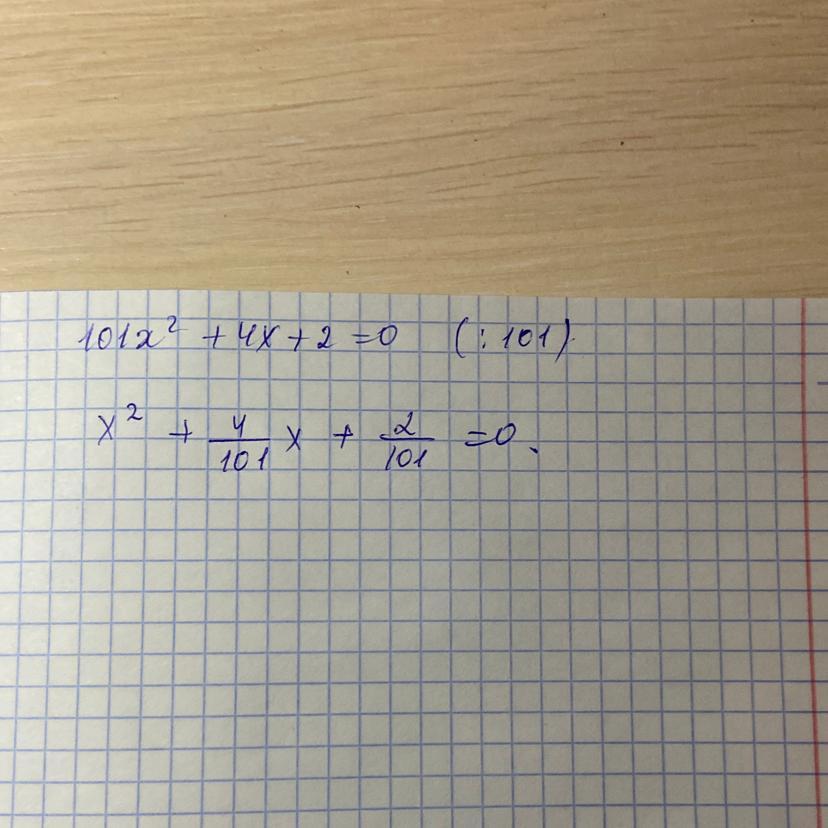 101x² + 4x + 2 = 0 (: 101)
x² + 4/101 x + 2/101 = 0.